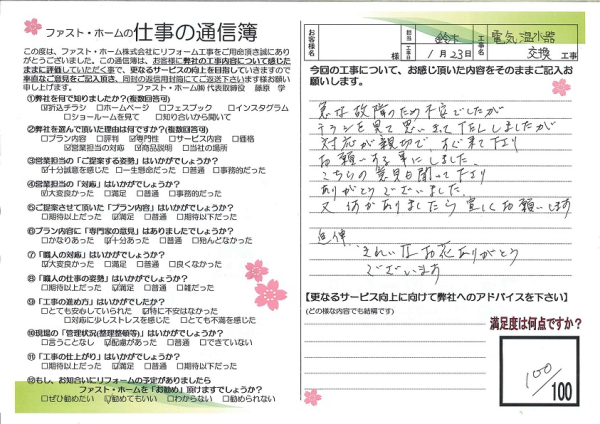 ファスト・ホームの仕事の通信簿
この度は、ファスト・ホーム株式会社にリフォーム工事をご用命頂き誠にあり
がとうございました。この通信簿は、お客様に弊社の工事内容について感じた
ままに評価していただく事で、更なるサービスの向上を目指していきますので
率直なご意見をご記入頂き、同封の返信用封筒にてご返送下さいます様お願い
申し上げます。 ファスト・ホーム㈱ 代表取締役 藤原 学
①弊社を何で知りましたか?(複数回答可)
☑折込チラシ □ホームページ □フェスブック □インスタグラム
□ショールームを見て □知り合いから聞いて
②弊社を選んで頂いた理由は何ですか?(複数回答可)
□プラン内容 □評判 ☑専門性 □サービス内容 □価格
☑営業担当の対応 ☑商品説明 □当社の場所
③営業担当の「ご提案する姿勢」はいかがでしょうか?
☑十分誠意を感じた □一生懸命だった □普通 □事務的だった
④営業担当の「対応」はいかがでしょうか?
☑大変良かった □満足 □普通 □事務的だった
⑤ご提案させて頂いた「プラン内容」はいかがでしょうか?
□期待以上だった ☑満足 □普通 □期待以下だった
⑥プラン内容に「専門家の意見」はありましたでしょうか?
□かなりあった ☑十分あった □普通 □殆んどなかった
⑦「職人の対応」はいかがでしょうか?
☑大変良かった □満足 □普通 □良くなかった
⑧「職人の仕事の姿勢」はいかがでしょうか?
□期待以上だった ☑満足 □普通 □雑だった
⑨「工事の進め方」はいかがでしたか?
□とても安心していられた ☑特に不安はなかった
□対応に少しストレスを感じた □とても不満を感じた
⑩現場の「管理状況(整理整頓等)」はいかがでしょうか?
□言うことなし ☑配慮があった □普通 □できていない
⑪「工事の仕上がり」はいかがでしょうか?
□期待以上だった ☑満足 □普通 □期待以下だった
⑫もし、お知合いにリフォームの予定がありましたら
ファスト・ホームを「お勧め」頂けますでしょうか?
□ぜひ勧めたい ☑勧めてもいい □わからない □勧められない
お客様名 様
担当 鈴木
工事日 1月23日
工事名 電気温水器
交換 工事
今回の工事について、お感じ頂いた内容をそのままご記入お
願いします。
急な故障のため不安でしたが
チラシを見て思いきってTELしましたが
対応が親切で すぐ来て下さり
お願いする事にしました。
こちらの意見も聞いて下さり
ありがとうございました。
又何かありましたら宜しくお願いします
追伸
きれいなお花ありがとう
ございます
【更なるサービス向上に向けて弊社へのアドバイスを下さい】
(どの様な内容でも結構です)
満足度は何点ですか?
100
/100